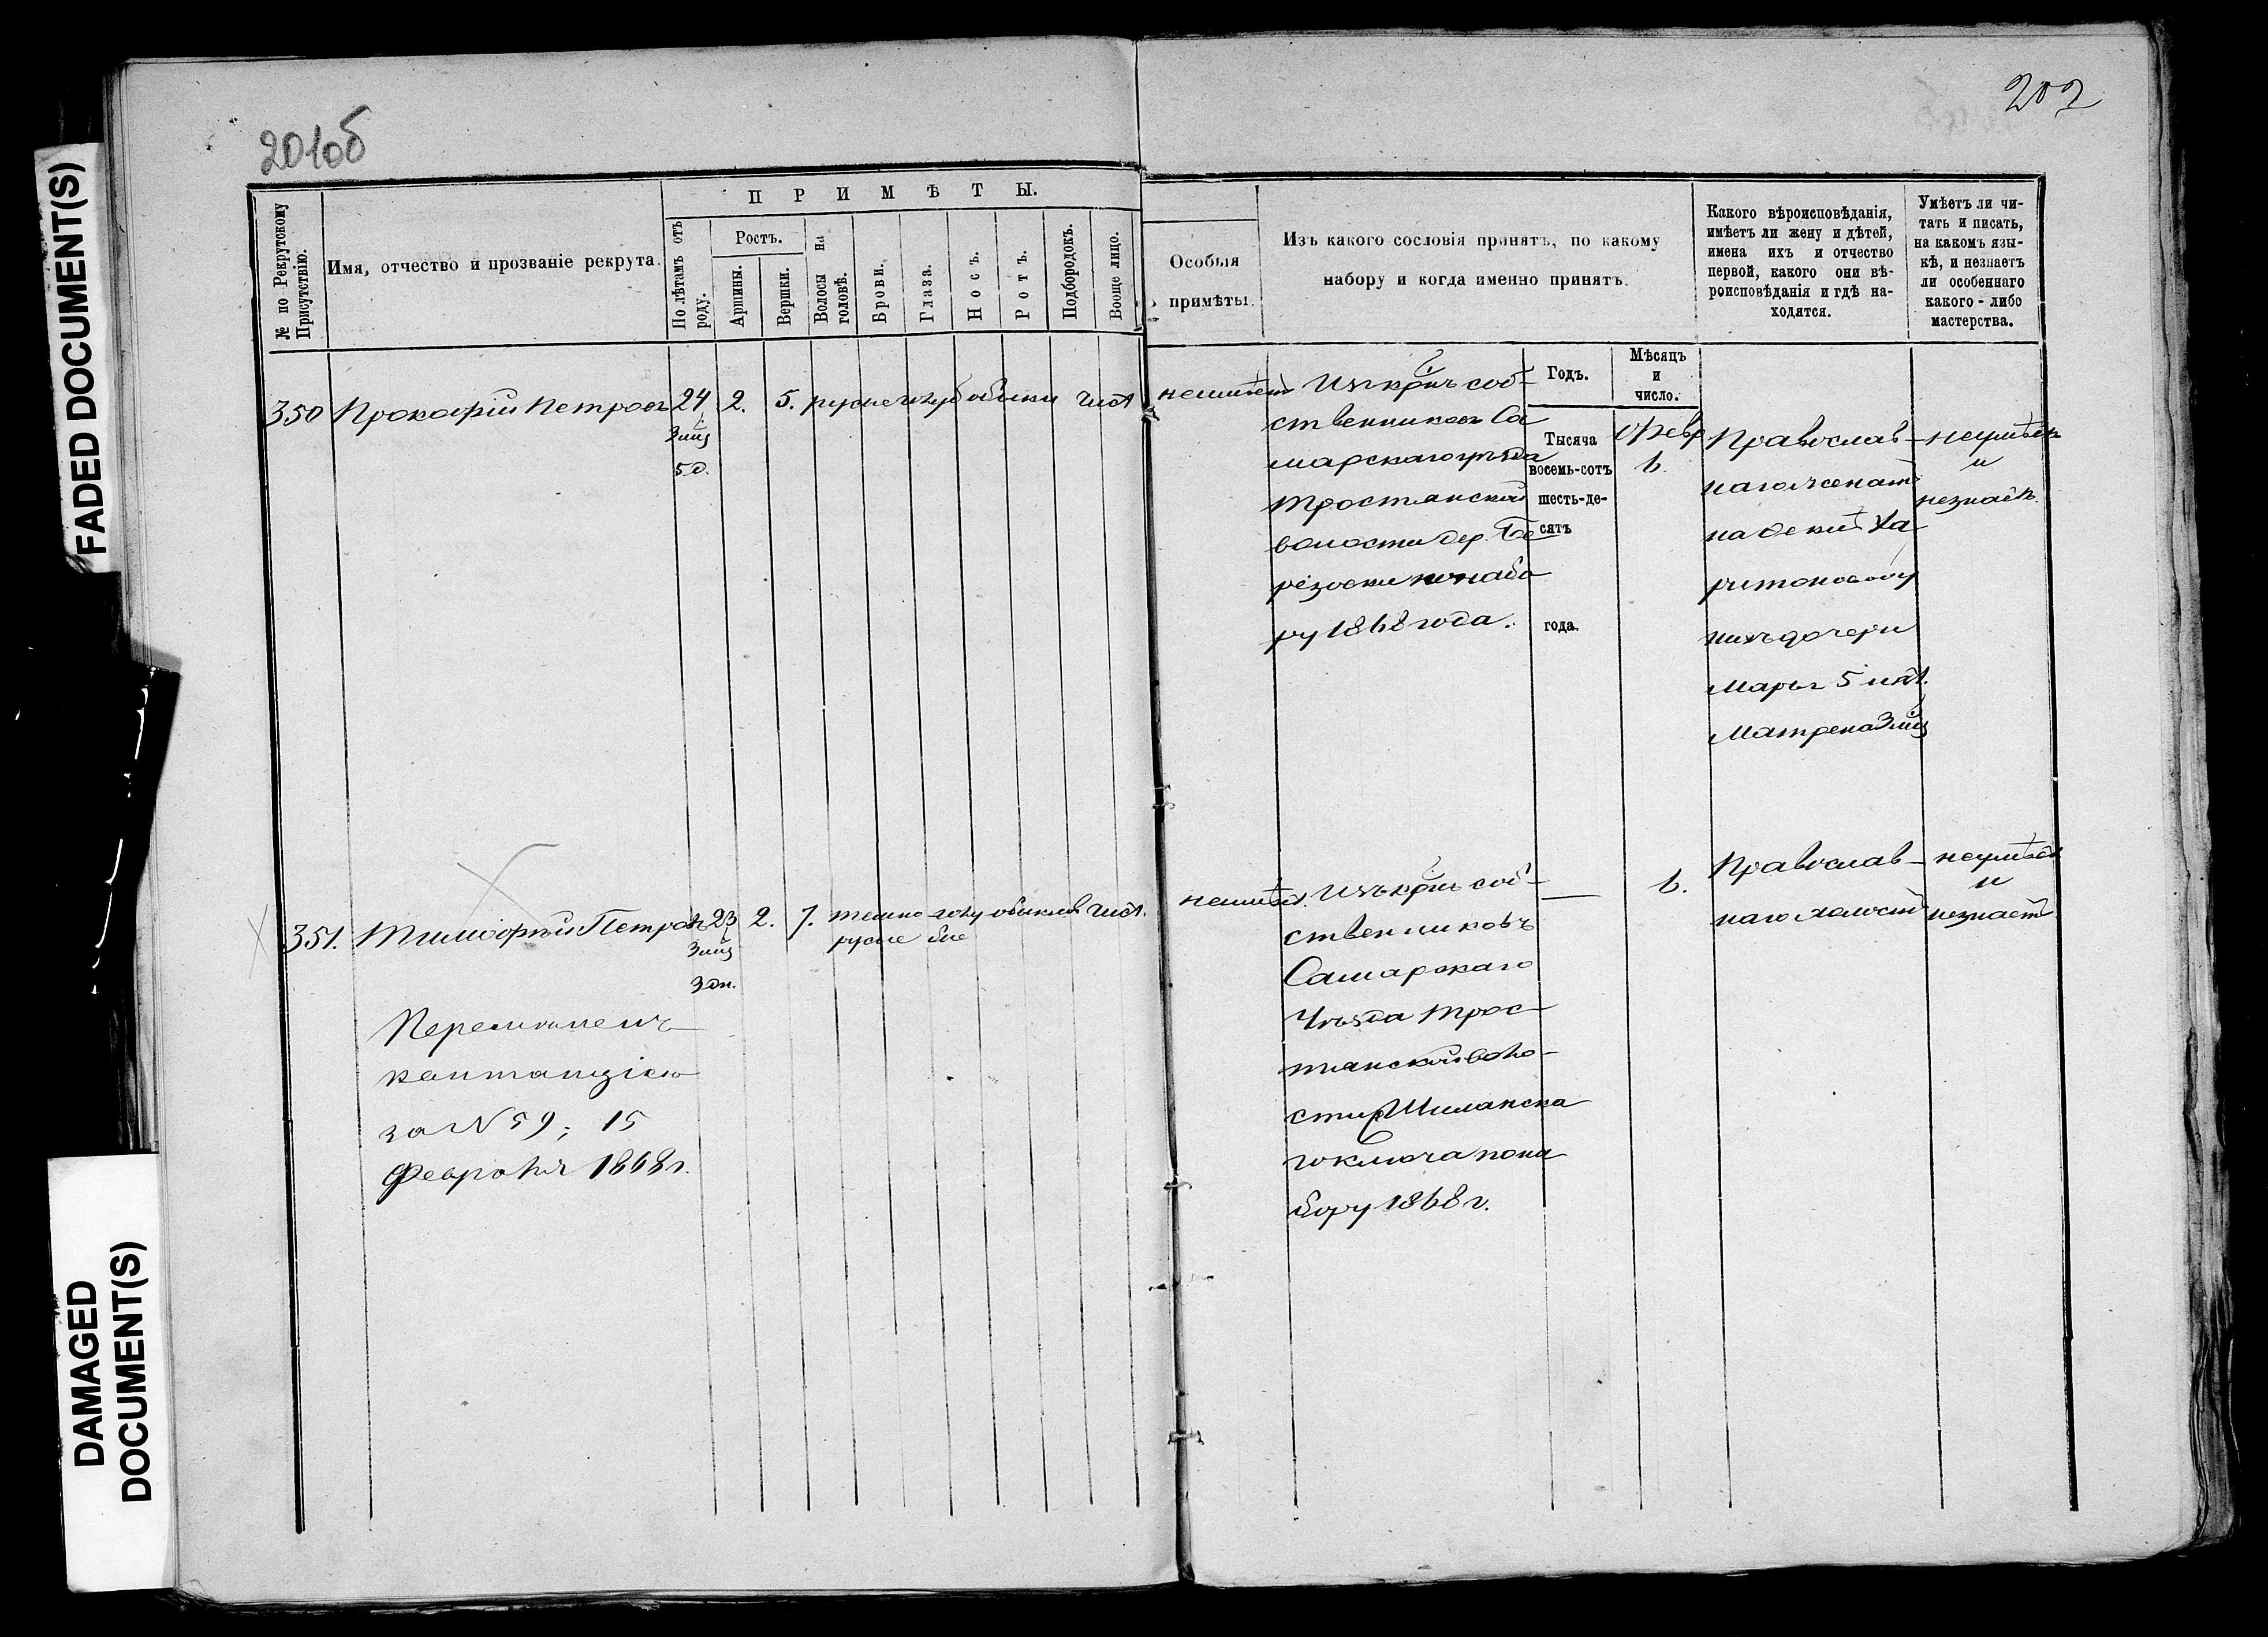 FADED DOCUMENT(S)
DAMAGED
DOCUMENT(S)
201об
202
№ по Рекрутскому
Присутствію.
Имя, отчество и прозваніе рекрута.
ПРИМѢТЫ.
По лѣтамъ отъ
роду.
Ростъ.
Аршины.
Вершки.
Волосы на
головѣ.
Брови.
Глаза.
Носъ.
Ротъ.
Подбородокъ.
Вообще лицо.
Особыя
примѣты.
Изъ какого сословія принятъ, по какому
набору и когда именно принятъ.
Какого вѣроисповѣданія,
имѣетъ ли жену и дѣтей,
имена ихъ и отчество
первой, какого они вѣ-
роисповѣданія и гдѣ на-
ходятся.
Умѣетъ ли чи-
тать и писать,
на какомъ язы-
кѣ, и незнаетъ
ли особеннаго
какого-либо
мастерства.
Годъ.
Мѣсяцъ
и
число.
350 Прокофій Петровъ 24 2. 5. русые голуб обыкн чист
3 мц
5 д.
неимѣетъ
Изъ крнъ соб-
ственниковъ Са
марскаго уѣзда
Тростянской
волости дер. Бе
резовки понабо
ру 1868 года.
Тысяча
восемь-сотъ
шесть-де-
сятъ
года.
Февр
6.
Православ-
наго женатъ
на Ха
ритоновой у
нихъ дочери
Марья 5 лѣт.
Матрена 3 мц
неумѣетъ
и
незнаетъ.
351. Тимофѣй Петровъ 23 2. 7. темно голу обыкнов чист.
русые бые
3 мц
3 дн.
Перемѣненъ
квитанціею
за № 59; 15
Февраля 1868 г.
неимѣет.
Изъ крнъ соб-
ственниковъ
Самарскаго
Уѣзда Трос-
тянской воло-
сти Шиланска
го ключа пона
бору 1868 г.
—
6.
Православ-
наго холостъ
неумѣетъ
и
незнаетъ